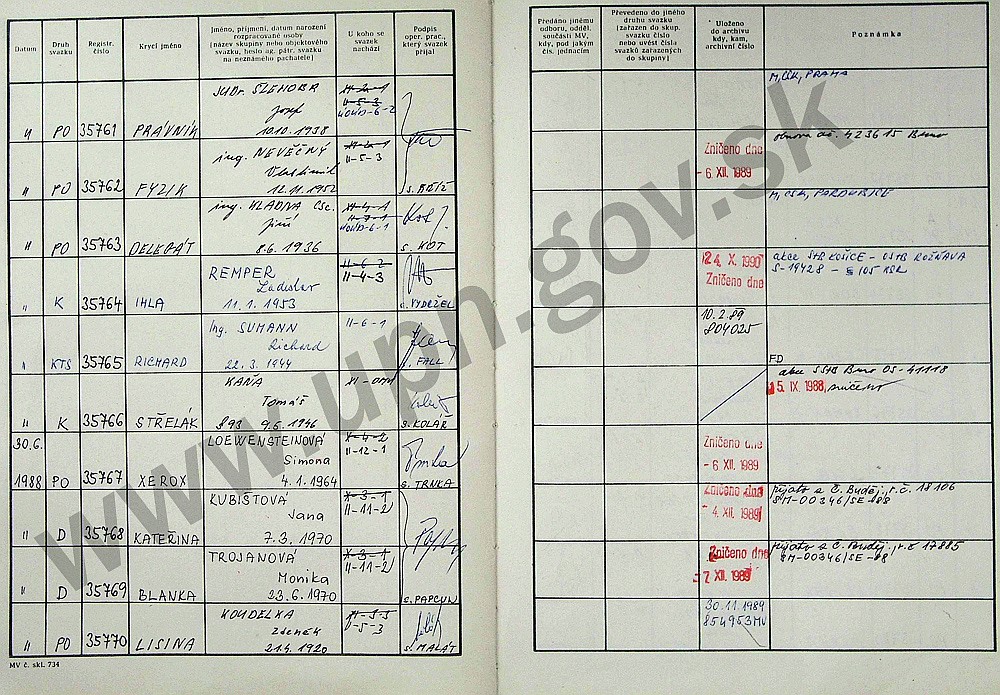 Datum
Druh
svazku
Registr.
číslo
Krycí jméno
Jméno, příjmení, datum narození
rozpracované osoby
(název skupiny nebo objektového
svazku, heslo ag. pátr. svazku
na neznámého pachatele)
U koho se
svazek
nachází
Podpis
oper. prac.,
který svazek
přijal
Předáno jinému
odboru, odděl.
součásti MV,
kdy, pod jakým
čís. jednacím
Převedeno do jiného
druhu svazku
(zařazen do skup.
svazku číslo
nebo uvést čísla
svazků zařazených
do skupiny)
Uloženo
do archivu
kdy, kam,
archivní číslo
Poznámka
M, ČSK, PRAHA
Josef
" PO 35761 PRÁVNÍK 10.10. 1938
obnova 423615 Brno
ing. NEVĚČNÝ
Vlastimil
II-5-3
Zničeno dne
- 6 XII. 1989
" PO 35762 FYZIK 12.11. 1952 s. BŘÍŽ
M, ČSK, PARDUBICE
ing. HLADNA CSc.
Jiří
" PO 35763 DELEGÁT 8.6. 1936 s. KOT
REMPER
Ladislav
II-6-2
II-4-3
24. X. 1990
Zničeno dne
akce StB KOŠICE - OStB ROŽŇAVA
S-19428 - § 105
" K 35764 IHLA 11. 1. 1953 s. VYDRŽEL
Ing. SUMANN
Richard
II-6-1
10. 2. 89
804025
" KTS 35765 RICHARD 22. 3. 1944 s. FALL
FD
KAŇA
Tomáš
akce SStB Brno OS-41118
15. IX. 1988, zničeno
" K 35766 STŘELÁK 893 9.6. 1946 s. KOLÁŘ
30.6.
LOEWENSTEINOVÁ
Simona
X-4-2
II-12-1
Zničeno dne
- 6 XII. 1989
1988 PO 35767 XEROX 4. 1. 1964 s. TRNKA
KUBIŠTOVÁ
Jana
X-3-1
II-11-2
Zničeno dne
- 4. XII. 1989
přijato z Č. Buděj., r.č. 18106
SM-00346/SE-88
" D 35768 KATEŘINA 7. 3. 1970
TROJANOVÁ
Monika
X-3-1
II-11-2
Zničeno dne
- 7 XII. 1989
přijato z Č. Buděj., r.č 17885
SM-00346/SE-88
" D 35769 BLANKA 23.6. 1970 s. PAPCUN
KOUDELKA
Zdeněk
30. 11. 1989
854953 MV
" PO 35770 LISINA 21.4. 1920 s. MALÁT
MV č. skl. 734
www.upn.gov.sk